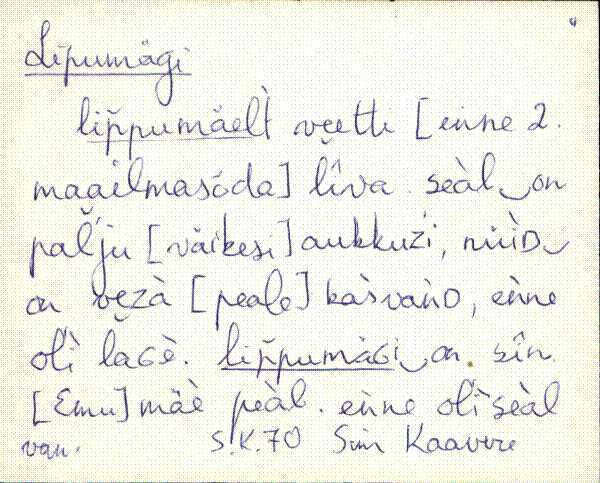 Lipumägi
lip̆pumäelt̀ veetti [enne 2.
maailmasõda] lîva. seàl‿on
pal'ju [väikesi] aukkuzi, nüìD‿
on vezà [peale] kàsvanD, enne
olì laGè. lip̆pumäGi‿on sîn
[Emu] mäè peàl. enne olì seàl
van. S.K.70 Sim Kaavere